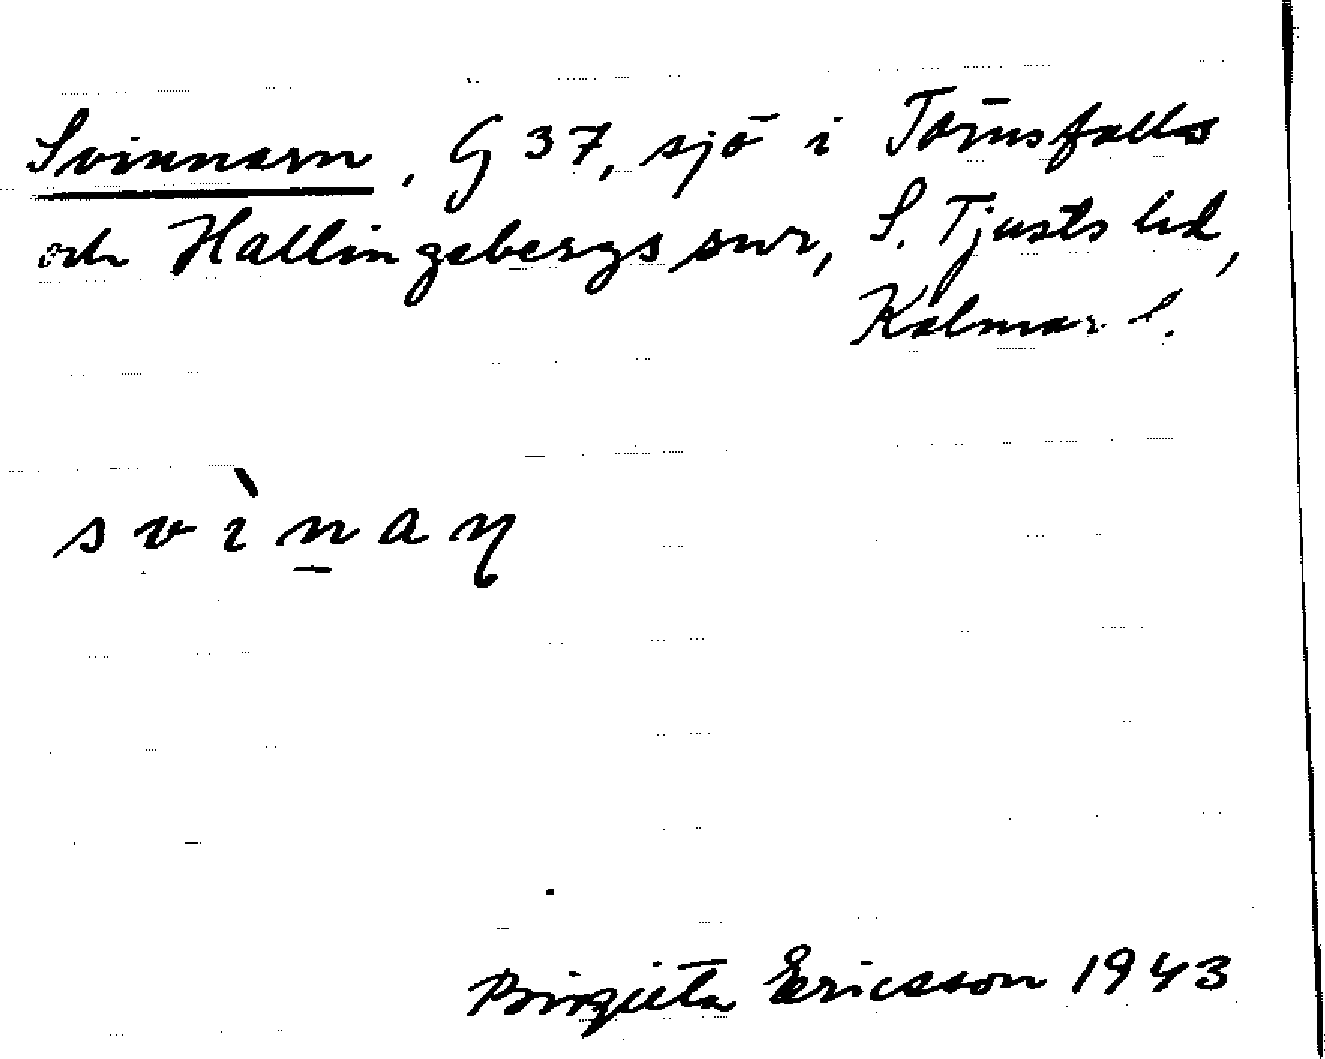 Svinnarn, G 37, sjö i Törnsfalls
och Hallingebergs snr, S. Tjusts hd,
Kalmar l.
svìn̲aɳ
Birgitta Ericsson 1943